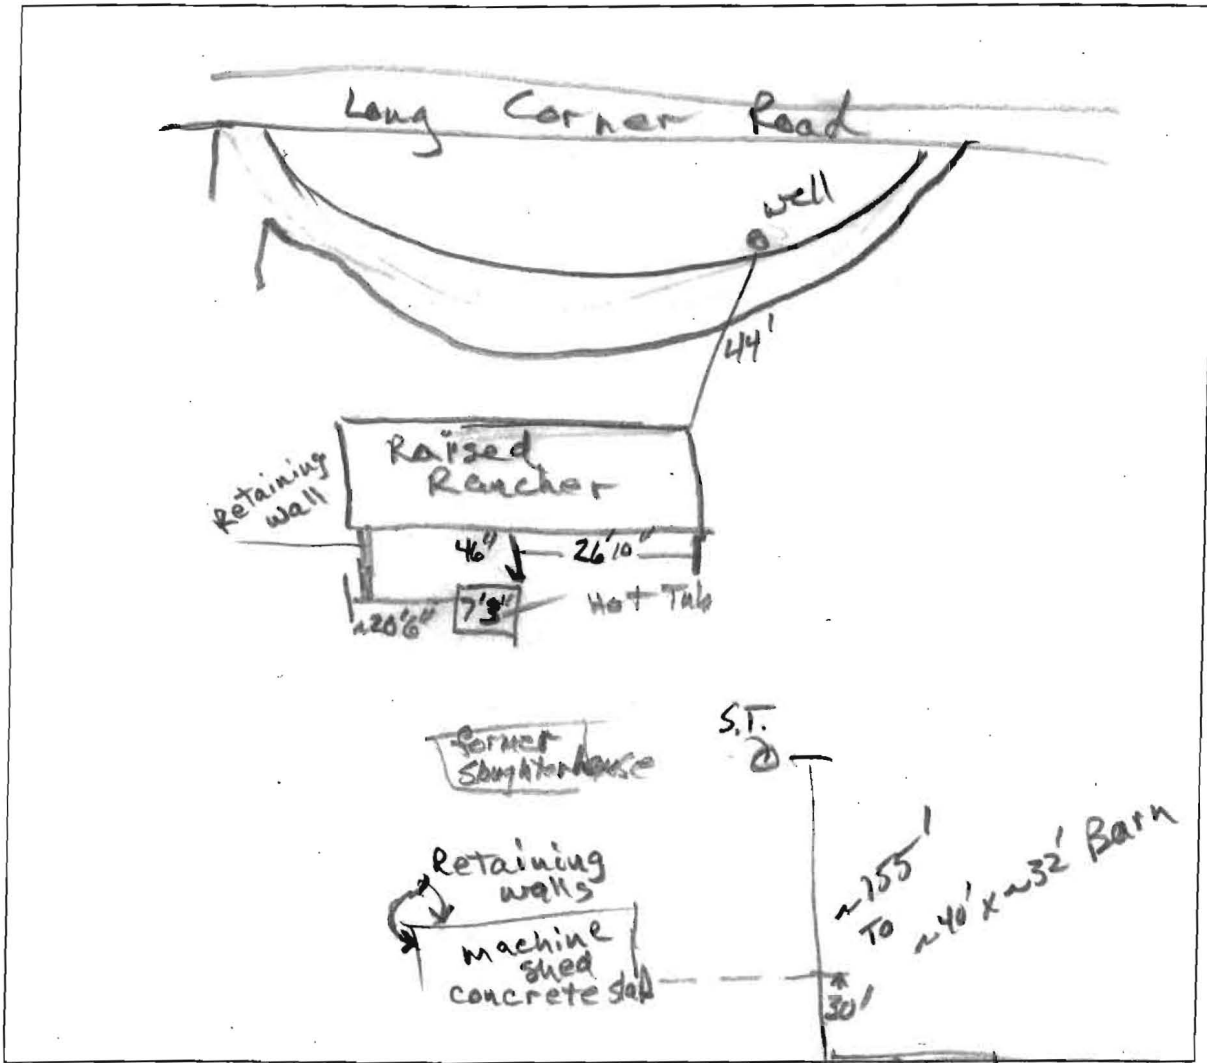 Long Corner Road
well
44'
Raised
Rancher
Retaining
wall
46"
26'10"
7'3"
Hot Tub
~20'6"
S.T.
former
slaughterhouse
Retaining
walls
machine
shed
concrete slab
~155'
To
~40' x ~32' Barn
30'